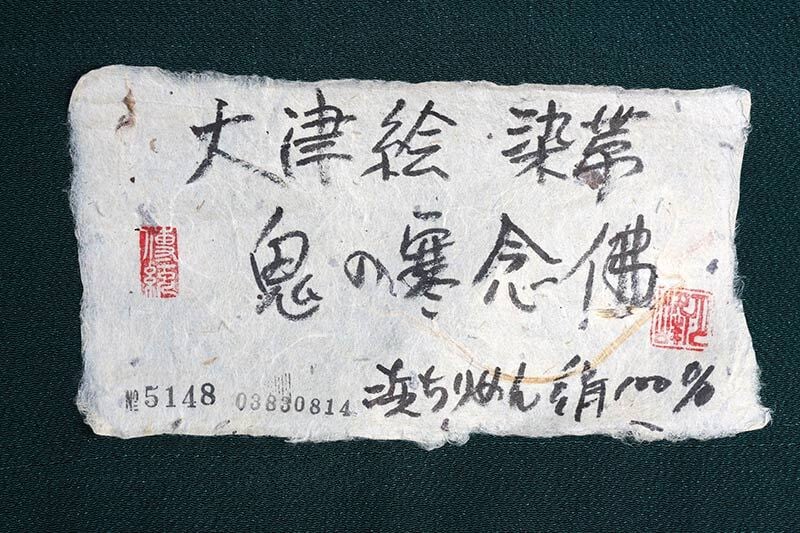 大津絵 染帯
鬼の寒念佛
浜ちりめん 絹100%
№5148 03830814